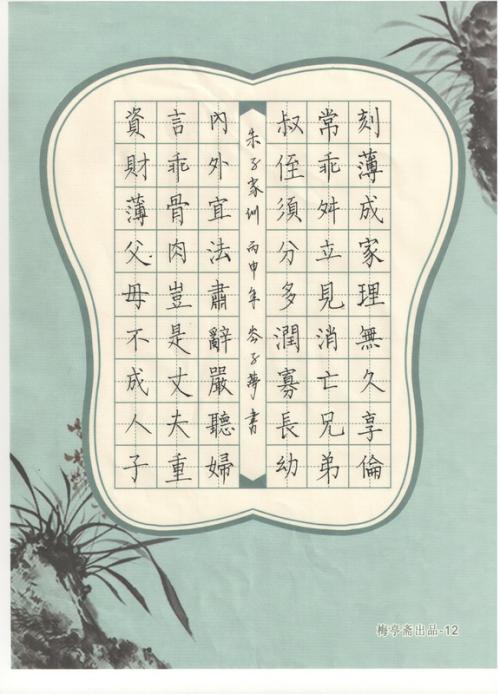 刻薄成家理無久享倫
常乖舛立見消亡兄弟
叔侄須分多潤寡長幼
朱子家训 丙申年 岑子夢 書
內外宜法肅辭嚴聽婦
言乖骨肉豈是丈夫重
資財薄父母不成人子
梅亭斋出品-12